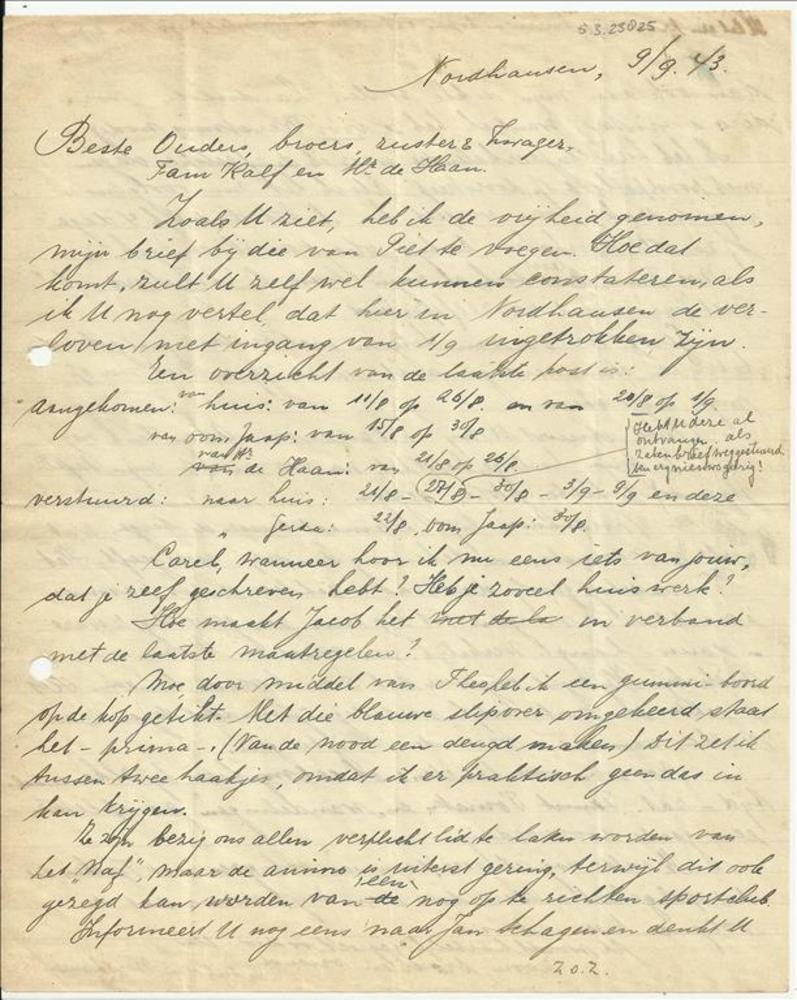 5.3.25825
Nordhausen, 9/9. 43.
Beste Ouders, broers, zuster & Zwager,
Fam Kalf en Hr. de Haan.
Zoals U ziet, heb ik de vrijheid genomen,
mijn brief bij die van Piet te voegen. Hoe dat
komt, zult U zelf wel kunnen constateren, als
ik U nog vertel, dat hier in Nordhausen de ver-
loven met ingang van 1/9 ingetrokken zijn.
Een overzicht van de laatste post is:
Aangekomen: van huis: van 11/8 op 26/8. en van 20/8 op 1/9.
van oom Jaap: van 15/8 op 30/8
van Hr. de Haan: van 21/8 op 26/8.
Hebt U deze al
ontvangen, als
zaken brief weggestuurd.
Ben erg nieuwsgierig!
verstuurd: naar huis: 24/8 - 27/8 - 30/8 - 3/9 - 9/9 en deze
" Gerda: 22/8, oom Jaap: 30/8.
Carel, wanneer hoor ik nu eens iets van jouw,
dat je zelf geschreven hebt? Heb je zoveel huiswerk?
Hoe maakt Jacob het met de la in verband
met de laatste maatregelen?
Moe, door middel van Theo heb ik een gummi-boord
op de kop getikt. Met die blauwe slipover omgekeerd staat
het - prima -. (Van de nood een deugd maken) Dit zet ik
tussen twee haakjes, omdat ik er praktisch geen das in
kan krijgen.
Ze zijn bezig ons allen verplicht lid te laten worden van
het "Naf", maar de animo is uiterst gering, terwijl dit ook
gezegd kan worden van de een nog op te richten sportclub.
Informeert U nog eens naar Jan Schagen en denkt U
Z.O.Z.